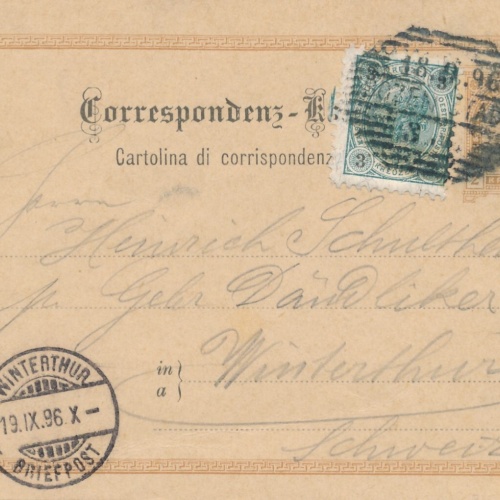 18 9 96
3 3
Correspondenz-K
Cartolina di corrispondenz
3
Herrn
Heinrich Schulth
p. Gebr Dändliker
in
a
Winterthur
Schweiz
WINTERTHUR
19.IX.96.X–
BRIEFPOST